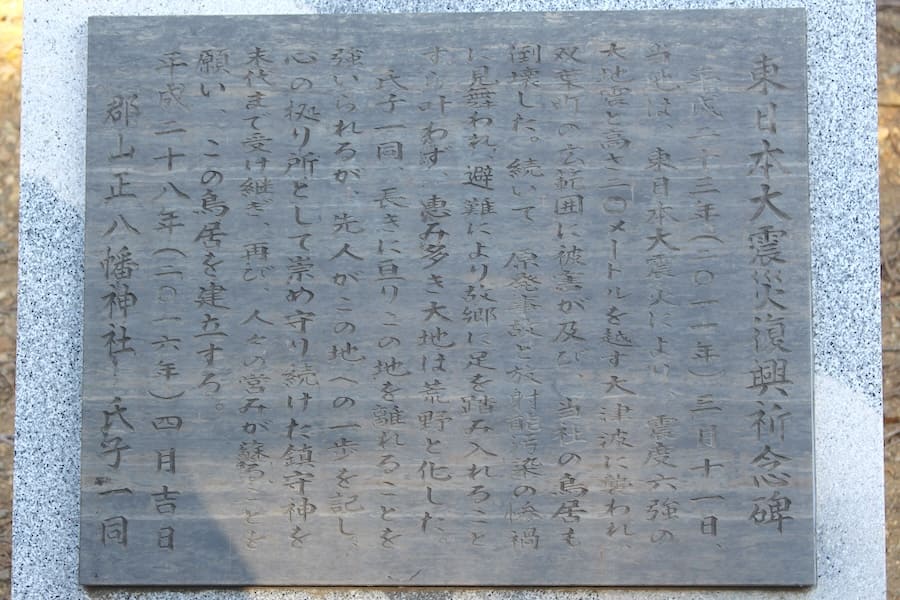 東日本大震災復興祈念碑
平成二十三年(二〇一一年)三月十一日、
当地は、東日本大震災により、震度六強の
大地震と高さ一〇メートルを越す大津波に襲われ、
双葉町の広範囲に被害が及び、当社の鳥居も
倒壊した。続いて、原発事故と放射能汚染の惨禍
に見舞われ、避難により故郷に足を踏み入れること
すら叶わず、恵み多き大地は荒野と化した。
氏子一同、長きに亘りこの地を離れることを
強いられるが、先人がこの地への一歩を記し、
心の拠り所として崇め守り続けた鎮守神を
末代まで受け継ぎ、再び人々の営みが蘇ることを
願い、この鳥居を建立する。
平成二十八年(二〇一六年)四月吉日
郡山正八幡神社 氏子一同